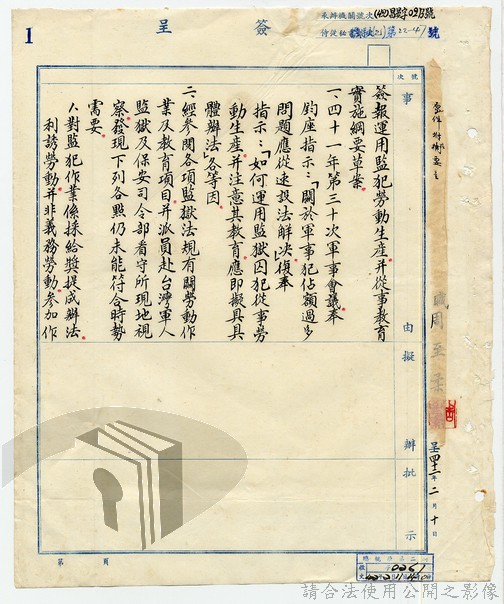 簽呈
1
承辦機關號次
號
侍從秘書
第22-41號
號次
事由
擬辦
批示
簽報運用監犯勞動生產并從事教育
實施綱要草案
一、四十一年第三十次軍事會議奉
鈞座指示：「關於軍事犯佔額過多
問題應從速設法解決」復奉
指示：「如何運用監獄囚犯從事勞
動生產并注意其教育應即擬具具
體辦法」各等因。
二、經參閱各項監獄法規有關勞動作
業及教育項目并派員赴台灣軍人
監獄及保安司令部看守所現地視
察發現下列各點仍未能符合時勢
需要。
1.對監犯作業係採給獎提成辦法
利誘勞動并非義務勞動參加作
職周至柔
呈四十二年二月十日
第 頁
0261
請合法使用公開之影像